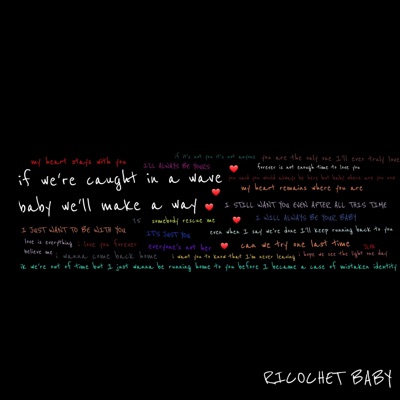 if it's not you it's not anyone you are the only one I'll ever truly love
my heart stays with you I'LL ALWAYS BE YOURS forever is not enough time to love you
if we're caught in a wave you said you would always be here but baby where are you now
my heart remains where you are
baby we'll make a way I STILL WANT YOU EVEN AFTER ALL THIS TIME
somebody rescue me I WILL ALWAYS BE YOUR BABY
I JUST WANT TO BE WITH YOU IT'S JUST YOU even when I say we're done I'll keep running back to you
love is everything i love you forever everyone's not her can we try one last time
believe me i wanna come back home i want you to know that I'm never leaving i hope we see the light one day
if we're out of time but I just wanna be running home to you before I became a case of mistaken identity
RICOCHET BABY